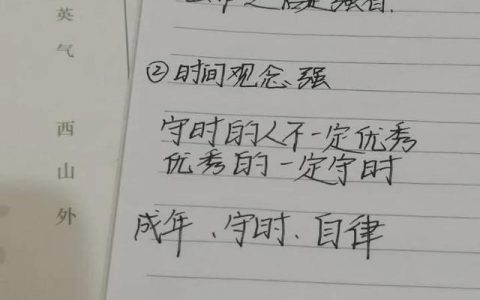 英气
西山外
②时间观念、强
守时的人不一定优秀
优秀的一定守时
成年、守时、自律